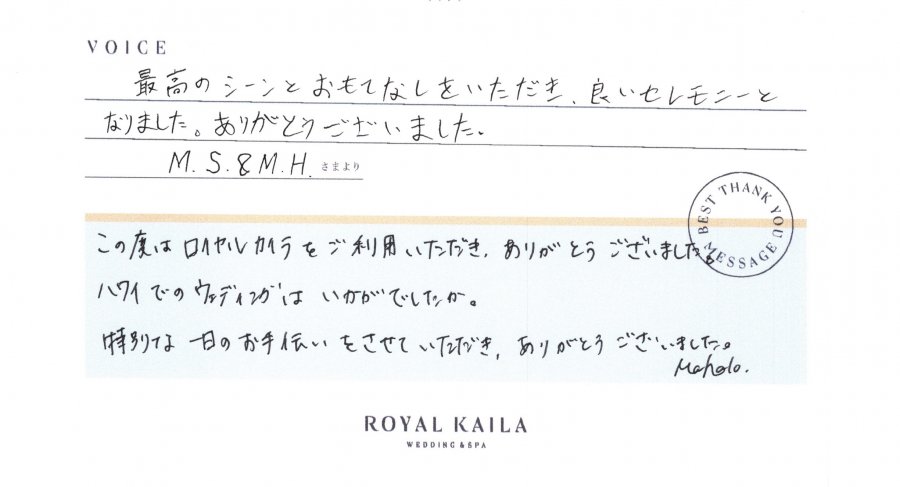 VOICE
最高のシーンとおもてなしをいただき、良いセレモニーと
なりました。ありがとうございました。
M.S.&M.H. さまより
BEST THANK YOU MESSAGE
この度はロイヤルカイラをご利用いただき、ありがとうございました。
ハワイでのウェディングはいかがでしたか。
特別な一日のお手伝いをさせていただき、ありがとうございました。
Mahalo.
ROYAL KAILA
WEDDING & SPA